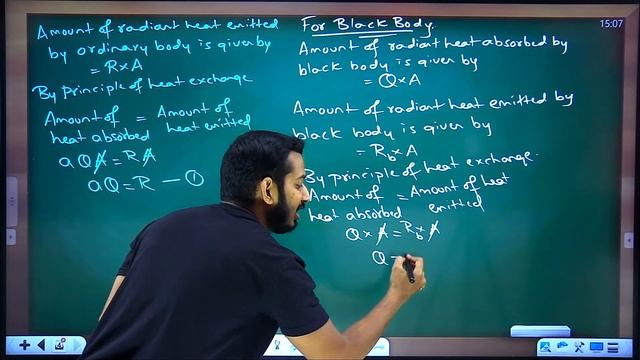 Amount of radiant heat emitted
by ordinary body is given by
= R×A
By principle of heat exchange
Amount of = Amount of
heat absorbed heat emitted
a Q A = R A
aQ = R — ①
For Black Body.
Amount of radiant heat absorbed by
black body is given by
= Q×A
Amount of radiant heat emitted by
black body is given by
= R_b×A
By principle of heat exchange.
Amount of = Amount of heat
heat absorbed emitted
Q × A = R_b × A
Q =
15:07